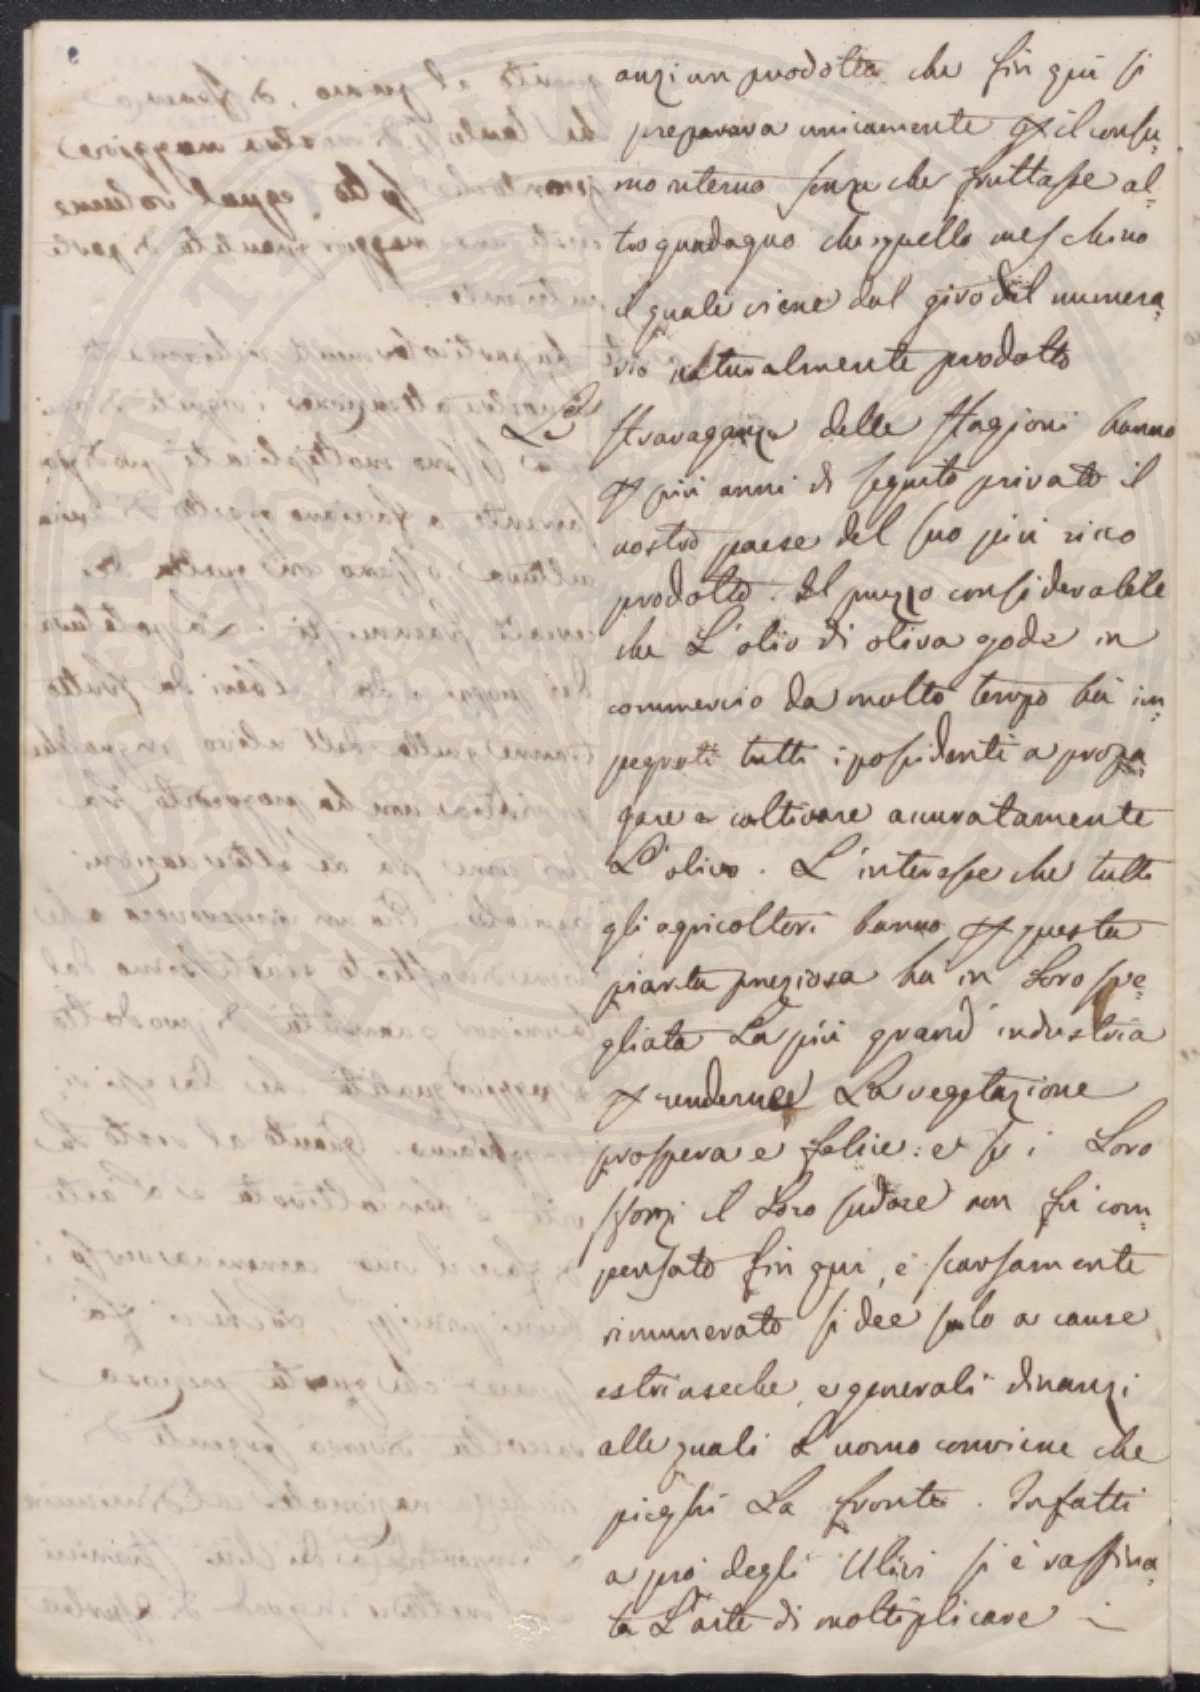 anzi un prodotto che fin qui si
preparava unicamente p il consu=
mo interno senza che fruttasse al=
tro guadagno che quello meschino
il quale viene dal giro del numera=
rio naturalmente prodotto
Le stravaganze delle stagioni hanno
p più anni di seguito privato il
nostro paese del suo più ricco
prodotto. Il prezzo considerabile
che L'olio di oliva gode in
commercio da molto tempo ha im=
pegnati tutti i possidenti a propa=
gare e coltivare accuratamente
L'olivo. L'interesse che tutti
gli agricoltori hanno p questa
pianta preziosa ha in Loro sve=
gliata La più grand' industria
p renderne La vegetazione
prospera e felice: e se i Loro
sforzi il Loro sudore non fu com=
pensato fin qui, e scarsamente
rimunerato si dee solo a cause
estrinseche, e generali dinanzi
alle quali L'uomo conviene che
pieghi La fronte. Infatti
a prò degli Ulivi si è raffina=
ta L'arte di moltiplicare i